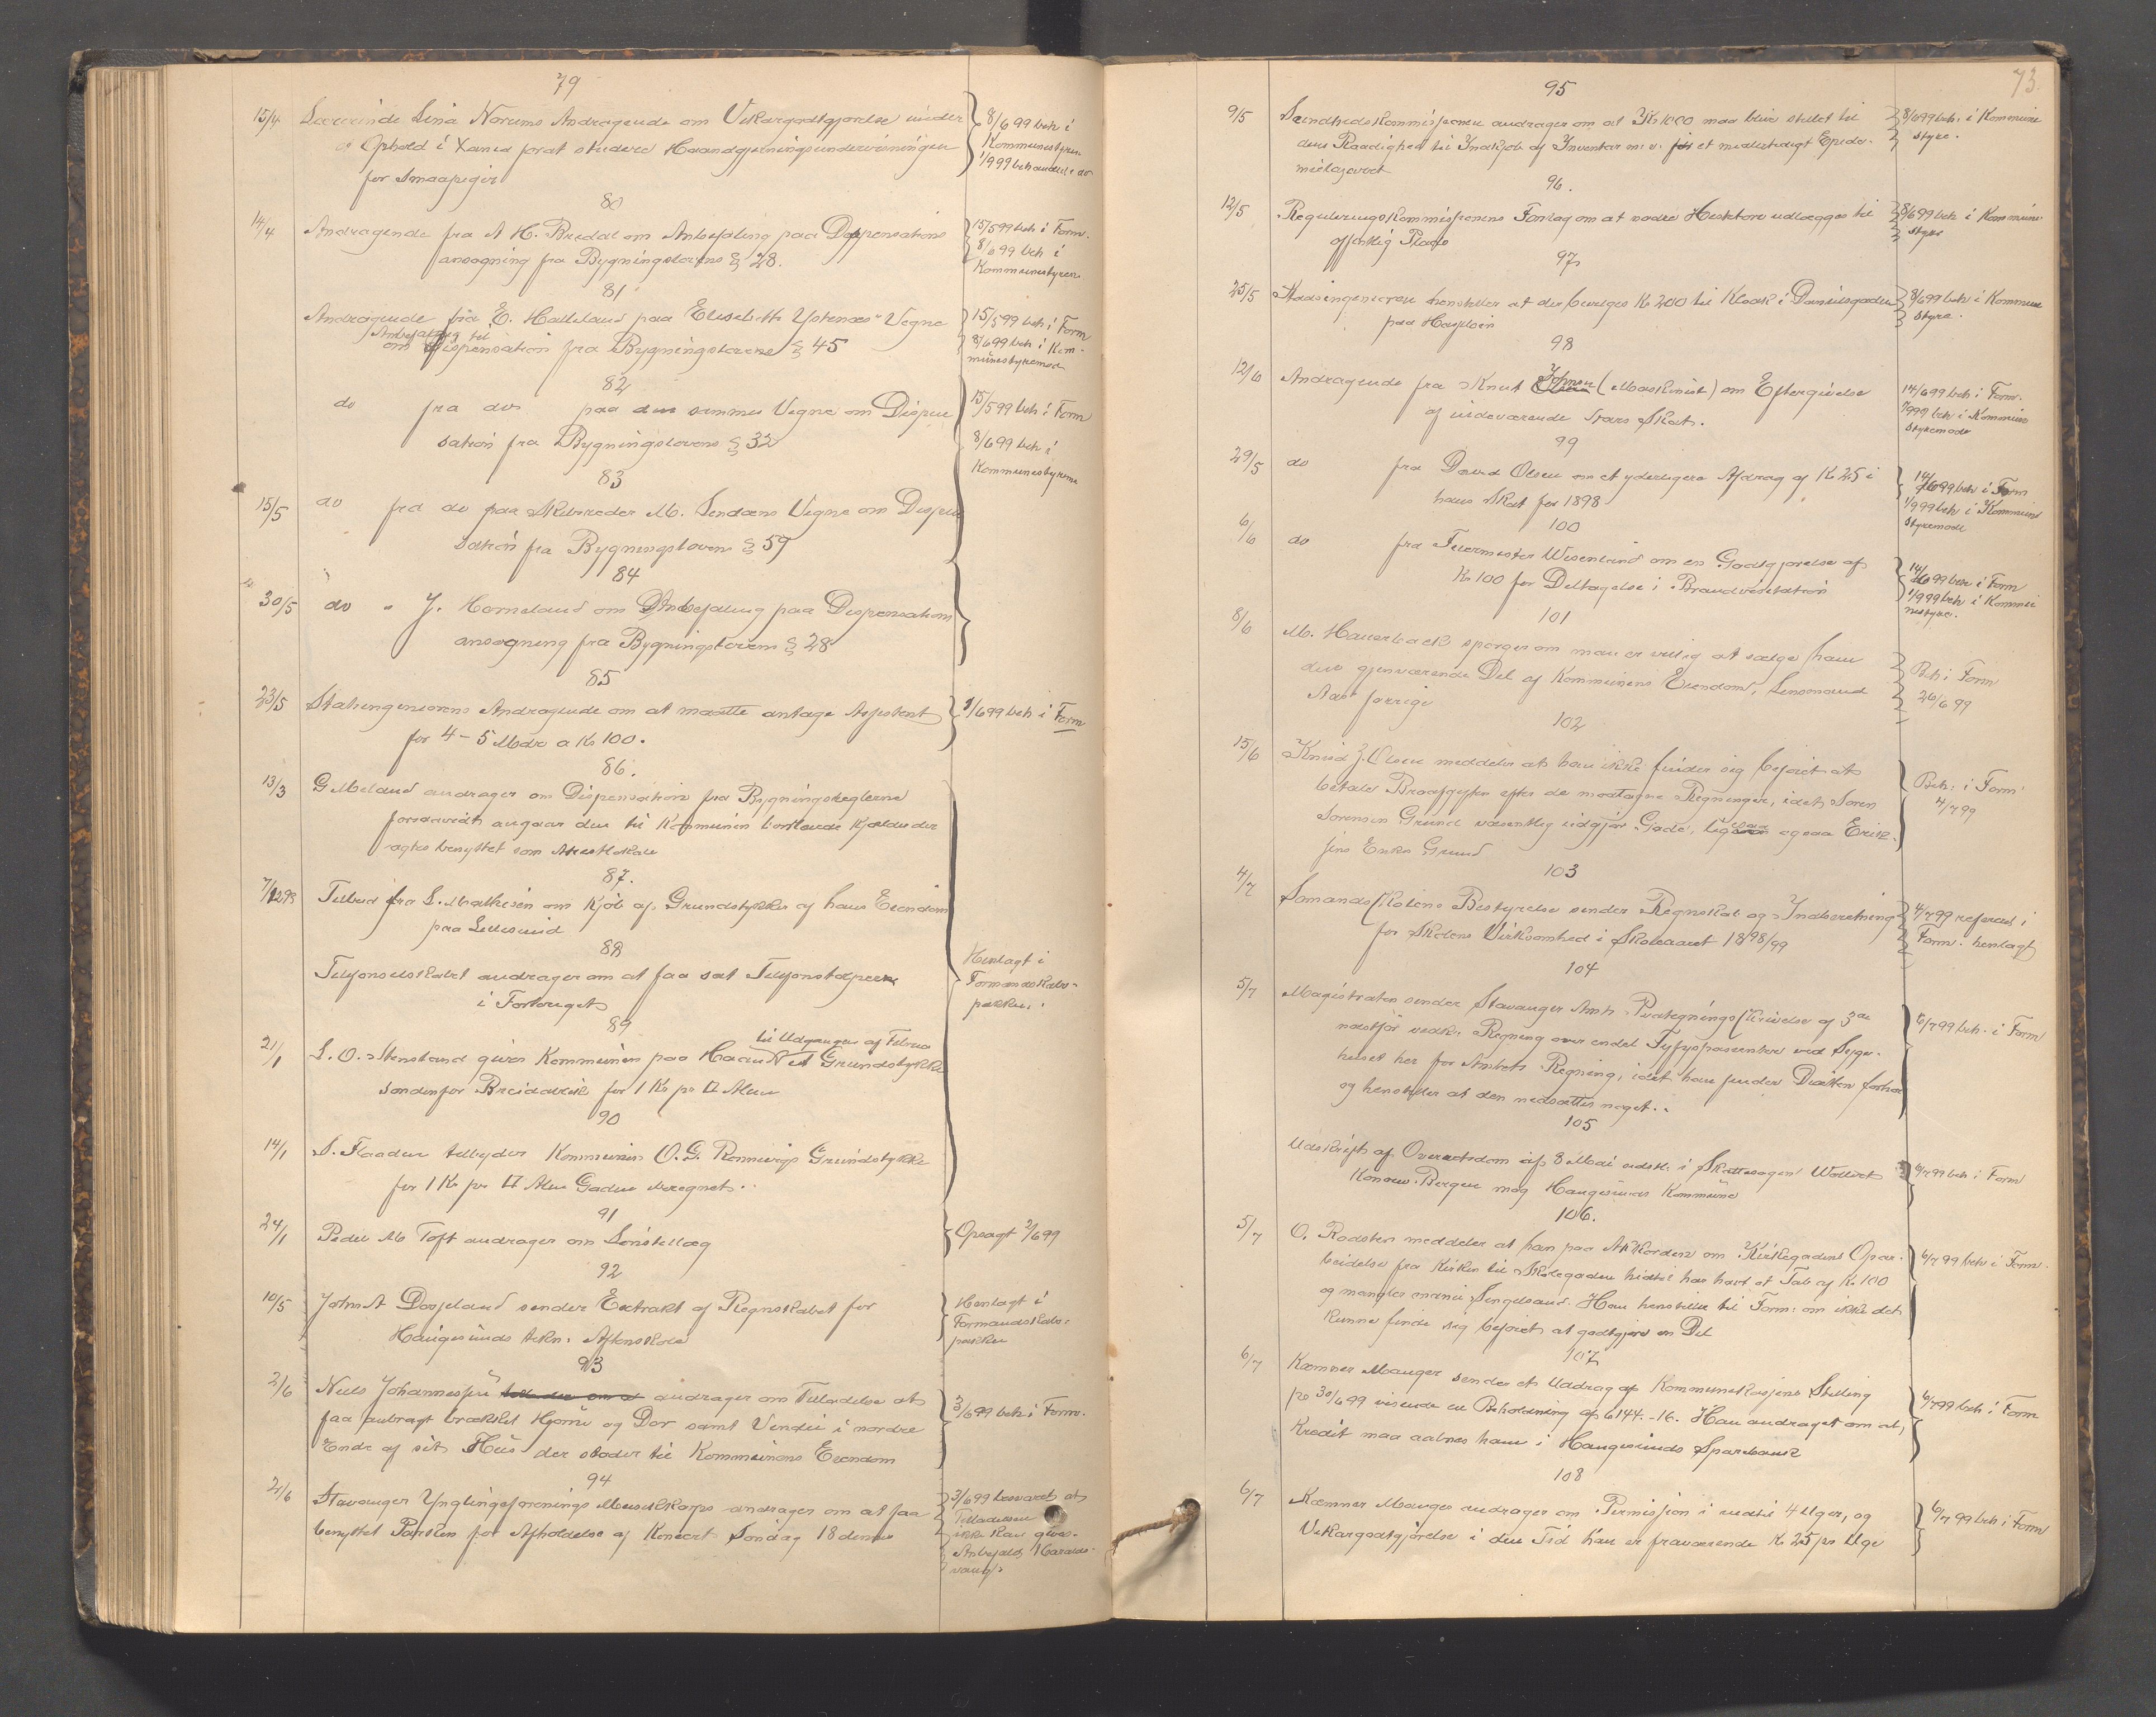 79
15/4 Lærerinde Lina Norums Andragende om Vikargodtgjørelse under
Ophold i Xania forat studere Haandgjerningsundervisningen
for Smaapiger
8/6 99 beh i
Kommunestyren
1/9 99 behandl. do
80
14/4 Andragende fra A H. Bredal om Anbefaling paa Dispensations
ansøgning fra Bygningslovens § 28.
15/5 99 beh i Form.
8/6 99 beh i
Kommunestyren
81
Andragende fra E. Halleland paa Elisabeth Ystenæs' Vegne
Anbefaling til
om Dispensation fra Bygningslovens § 45
15/5 99 beh i Form
8/6 99 beh i Kom-
munestyremøde
82
do fra do paa den sammes Vegne om Dispen
sation fra Bygningslovens § 32
15/5 99 beh i Form
8/6 99 beh i
Kommunestyren
83
15/5 do fra do paa Skibsreder M. Sendens Vegne om Dispen
sation fra Bygningsloven § 59
84
30/5 do " J. Horneland om Anbefaling paa Dispensations
ansøgning fra Bygningslovens § 28
85
23/5 Staingeniørens Andragende om at maatte antage Assistent
for 4-5 Mdr a Kr 100.
9/6 99 beh i Form
86.
13/3 G Meland andrager om Dispensation fra Bygningsreglerne
forsaavidt angaar den til Kommunen bortleiede Kjælder der
agtes benyttet som Arrestlokale
87.
7/12 98 Tilbud fra L. Mathisen om Kjøb af Grundstykke af hans Eiendom
paa Lillesund
88
Telefonselskabet andrager om at faa sat Telefonstolperne
i Fortouget
Henlagt i
Formandskabs-
pakken.
89
til Udgangen af Februar
21/1 L. O. Stensland giver Kommunen paa Haand et Grundstykke
søndenfor Breidablik for 1 Kr pr □ Alen
90
14/1 S. Flaaden tilbyder Kommunen O. G. Rønnevigs Grundstykke
for 1 Kr pr □ Alen Gaden iberegnet.
91
24/1 Peder M Toft andrager om Lønstillæg
Opsagt 2/6 99
92
10/5 John A Dosseland sender Extrakt af Regnskabet for
Haugesunds tekn: Aftenskole
Henlagt i
Formandskabs-
pakken
93
2/6 Niels Johannessen andrager om Tilladelse at
faa anbragt brækket Hjørne og Dør samt Vindu i nordre
Ende af sit Hus der støder til Kommunens Eiendom
3/6 99 beh i Form.
94
2/6 Stavanger Ynglingeforenings Musikkorps andrager om at faa
benyttet Parken for Afholdelse af Koncert Søndag 18 dennes
3/6 99 besvaret at
Tilladelsen
ikke kan gives.
Anbefalt Haralds-
vang.
73.
95
9/5 Sundhedskommissionen andrager om at Kr 1000 maa blive stillet til
dens Raadighed til Indkjøb af Inventar m. v. for et midlertidigt Epide-
mielazaret
8/6 99 beh. i Kommune
styre.
96.
12/5 Reguleringskommissionens Forslag om at søndre Hesktorv udlægges til
offentlig Plads
8/6 99 beh i Kommune
styre
97
25/5 Stadsingeniøren henstiller at der bevilges Kr 200 til Kloak i Danielsgaden
paa Hasseløen
8/6 99 beh i Kommune
styre.
98
12/6 Andragende fra Knut Johnsen (Maskinist) om Eftergivelse
af indeværende Aars Skat.
14/6 99 beh i Form.
1/9 99 beh i Kommune
styremøde
99
29/5 do fra David Olsen om et yderligere Afdrag af Kr 25 i
hans Skat for 1898
14/6 99 beh i Form
1/9 99 beh i Kommune
styremøde
100
6/6 do fra Feiermester Wesenlund om en Godtgjørelse af
Kr 100 for Deltagelse i Brandvisitation
14/6 99 beh i Form
1/9 99 beh i Kommu
nestyre.
101
8/6 M. Hauerback spørger om man er villig at sælge ham
den gjenværende Del af Kommunens Eiendom, Lensmand
Aas' forrige
Beh i Form
26/6 99
102
15/6 Knud J. Olsen meddeler at han ikke finder sig beføiet at
betale Bropgift efter de modtagne Regninger, idet Søren
Sørensen Grund væsentlig udgjør Gade, ligesaa ogsaa Erik-
sens Enkes Grund
Beh: i Form
4/7 99
103
4/7 Sømandsskolens Bestyrelse sender Regnskab og Indberetning
for Skolens Virksomhed i Skoleaaret 1898/99
4/7 99 referert i
Form. henlagt
104
5/7 Magistraten sender Stavanger Amts Paategningsskrivelse af 3de
næstfør vedk. Regning over endel Tyfuspatienter ved Syge-
huset her for Amtets Regning, idet han finder Diæten forhøi
og henstiller at den nedsættes noget.
6/7 99 beh. i Form
105
Udskrift af Overretsdom af 8 Mai vedk. i Skattesagen Wollert
Konow. Bergen mod Haugesunds Kommune
6/7 99 beh i Form
106.
5/7 O. Rødsten meddeler at han paa Akkorden om Kirkegadens Opar-
beidelse fra Kirken til Skolegaden hidtil har havt et Tab af Kr. 100
og mangler endnu Singelsand. Han henstiller til Form: om ikke det
kunne finde sig beføiet at godtgjøre en Del
6/7 99 beh i Form.
107
6/7 Kæmner Mauger sender et Uddrag af Kommunekassens Stilling
pr 30/6 99 visende en Beholdning af 6144.-16. Han andraget om at
Kredit maa aabnes ham i Haugesunds Sparebank
6/7 99 beh i Form
108
6/7 Kæmner Mauger andrager om Permission i indtil 4 Uger, og
Vikargodtgjørelse i den Tid han er fraværende Kr 25 pr Uge
6/7 99 beh i Form